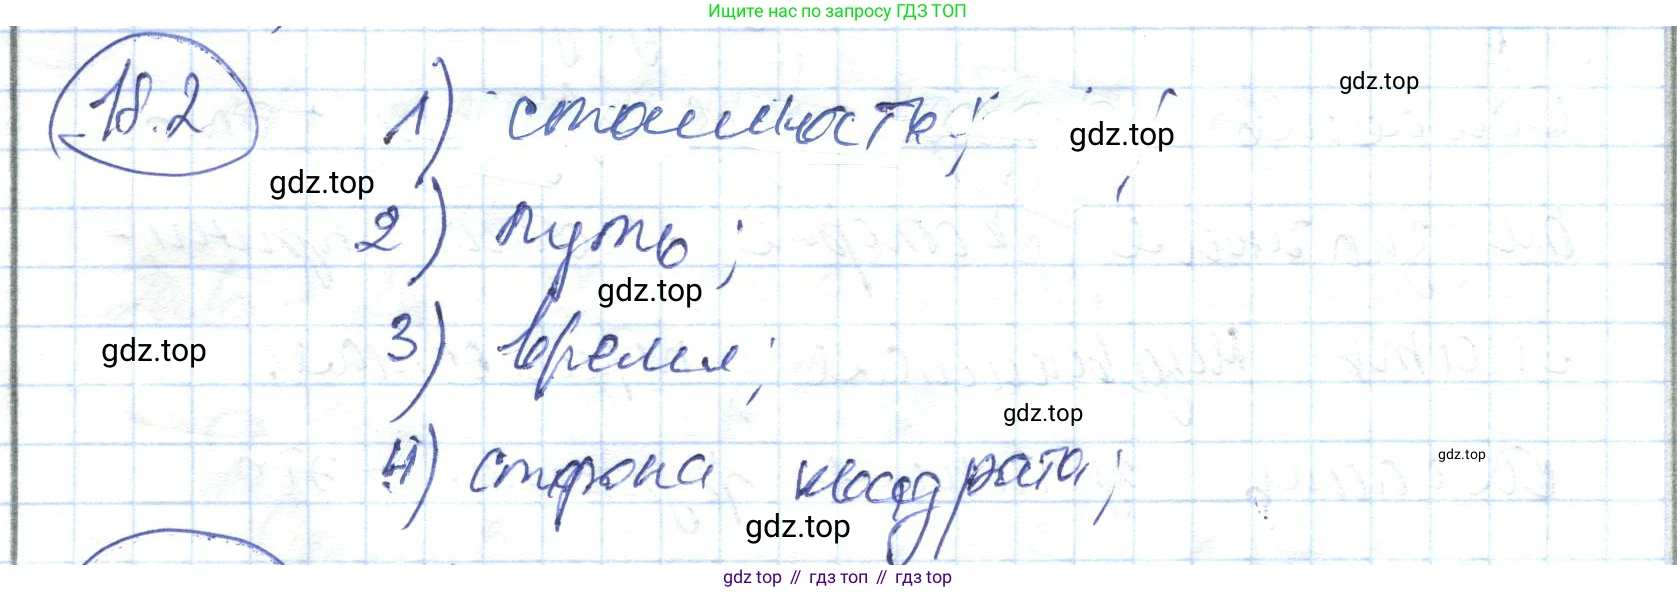 Ищите нас по запросу ГДЗ ТОП
18.2 1) стоимость;
gdz.top
gdz.top
gdz.top
2) путь;
gdz.top
3) время;
gdz.top
gdz.top
4) сторона квадрата;
gdz.top
gdz.top
gdz top // гдз топ // гдз top